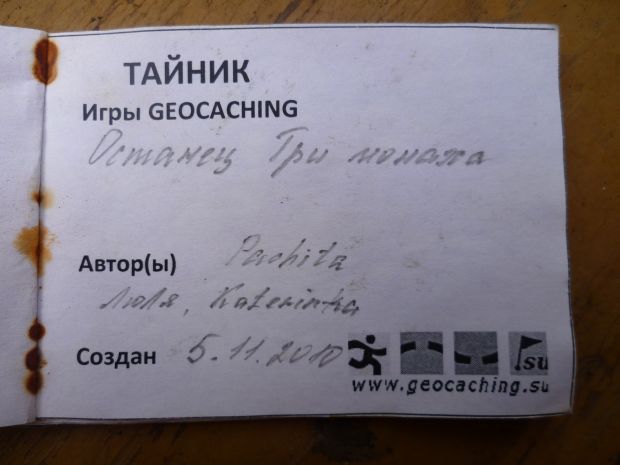 ТАЙНИК
Игры GEOCACHING
Останец Три монаха
Автор(ы) Pachita
Люля, Katerinka
Создан 5.11.2010
.su
www.geocaching.su